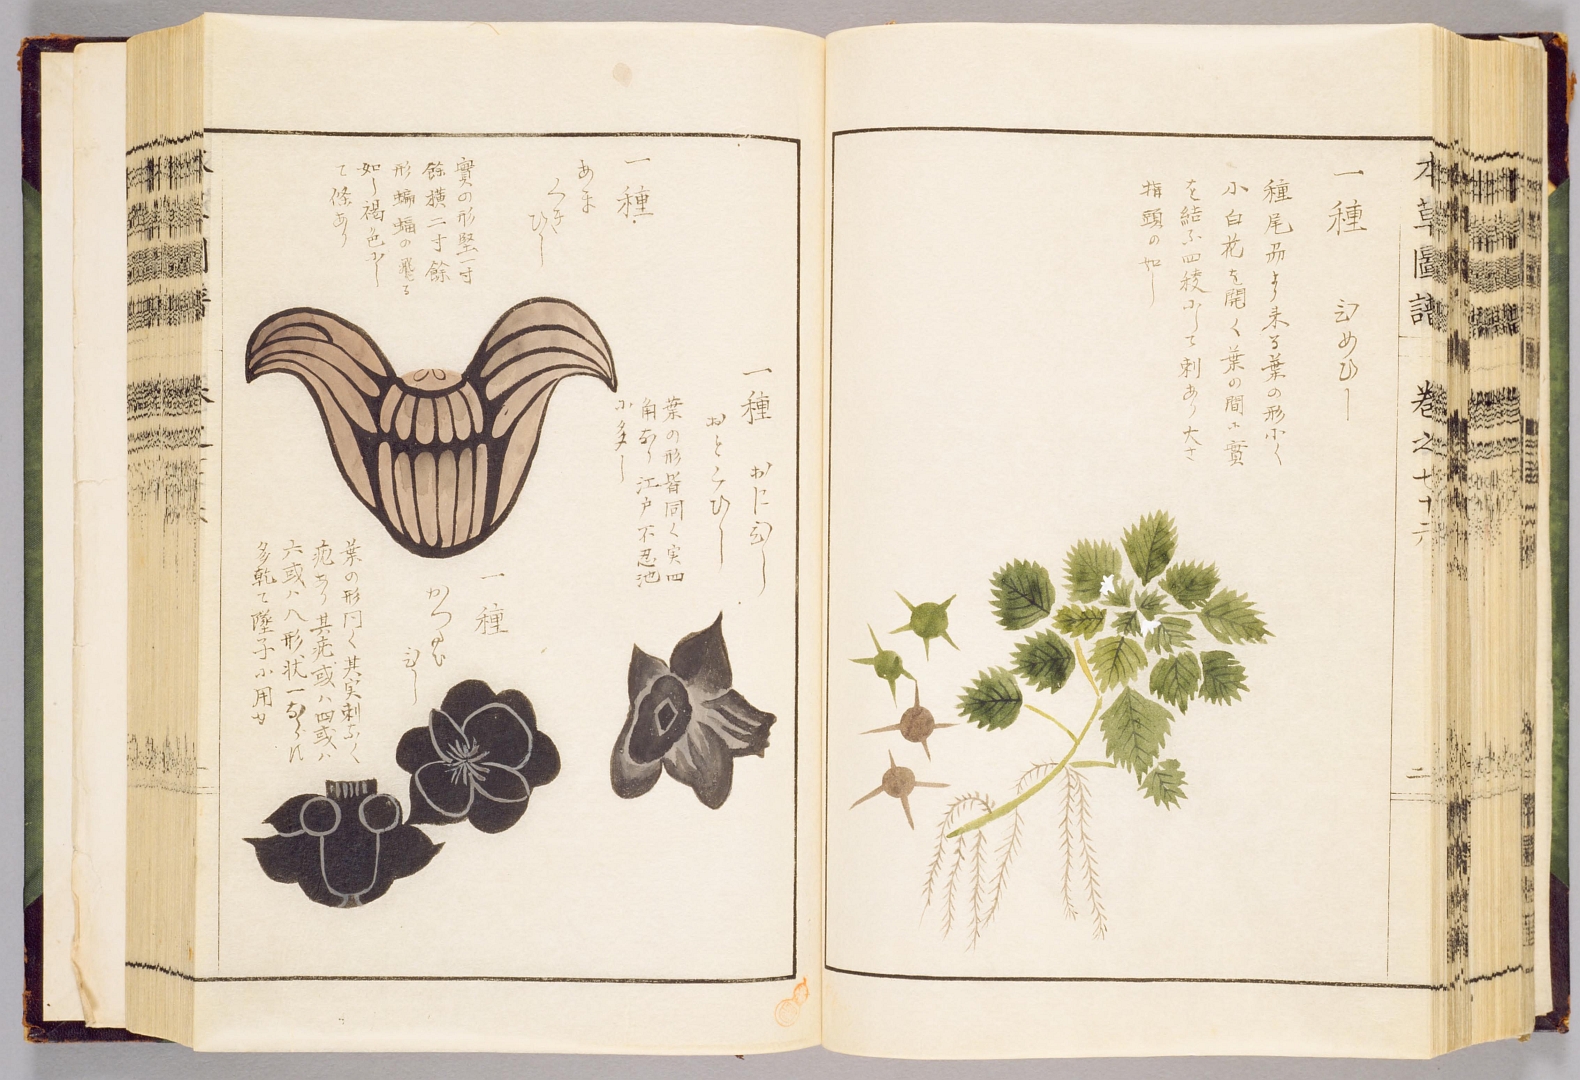 本草圖譜 卷之七十六
二
一種 ひめひし
種尾州より来る葉の形小く
小白花を開く葉の間に實
を結ふ四稜にして刺あり大さ
指頭の如し
一種 おにひし
おとこひし
葉の形皆同く実四
角なり江戸不忍池
に多し
一種
あま
くき
ひし
實の形竪一寸
餘横二寸餘
形蝙蝠の飛る
如し褐色にし
て條あり
一種
ひし
葉の形同く其実刺なく
疣あり其疣或ハ四或ハ
六或ハ八形状一ならす
多乾て墜子に用ゆ